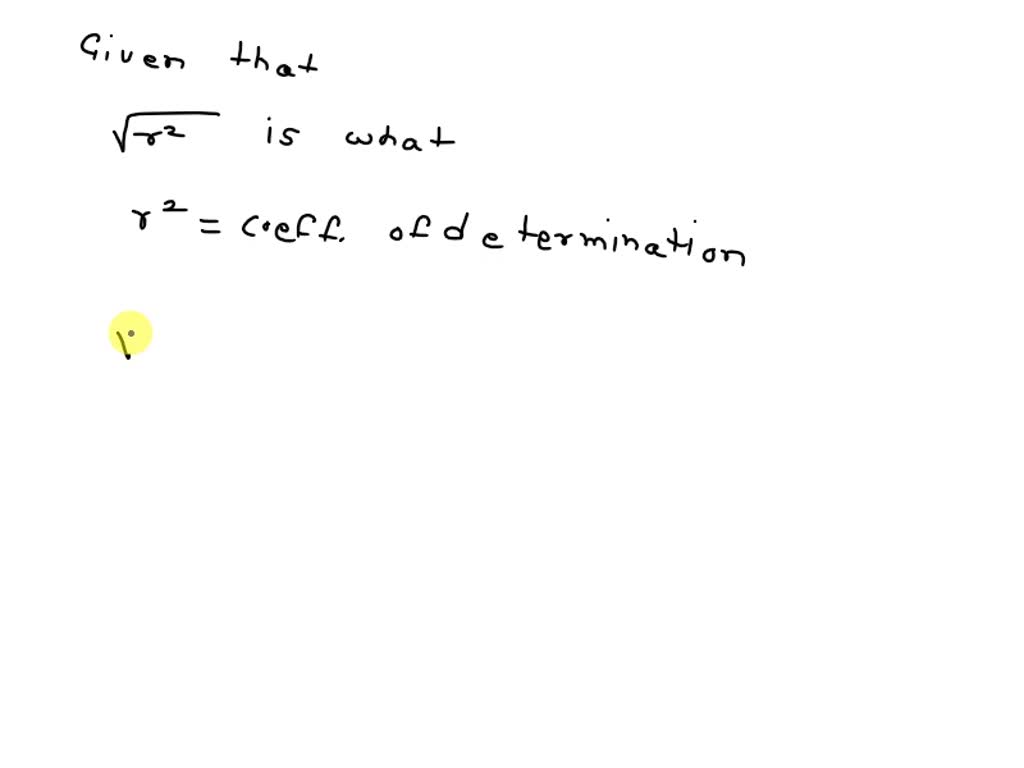 Given that
√r² is what
r² = coeff. of determination